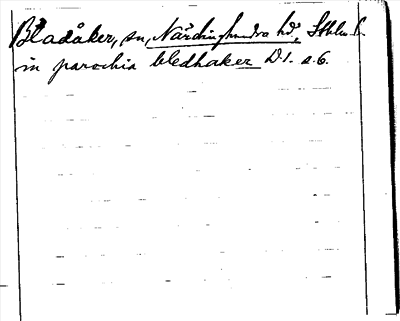 Bladåker, sn, Närdinghundra hd, Sthlm l.
in parochia bledhaker D.1. s.6.